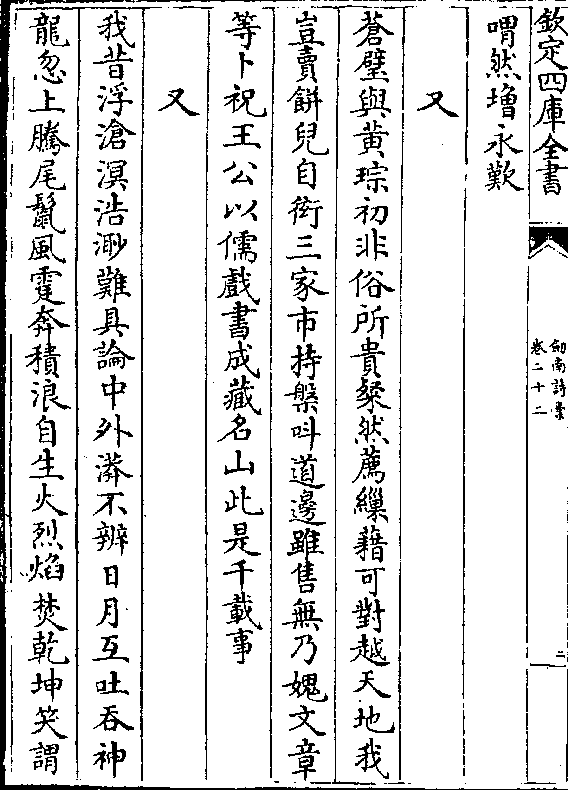 欽定四庫全書
劍南詩稾
卷二十二
二
喟然增永歎
又
蒼璧與黃琮初非俗所貴粲然薦繅藉可對越天地我
豈賣餅兒自衒三家市持槃叫道邊雖售無乃媿文章
等卜祝王公以儒戲書成藏名山此是千載事
又
我昔浮滄溟浩渺難具論中外漭不辨日月互吐吞神
龍忽上騰尾鬛風霆奔積浪自生火烈焰焚乾坤笑謂